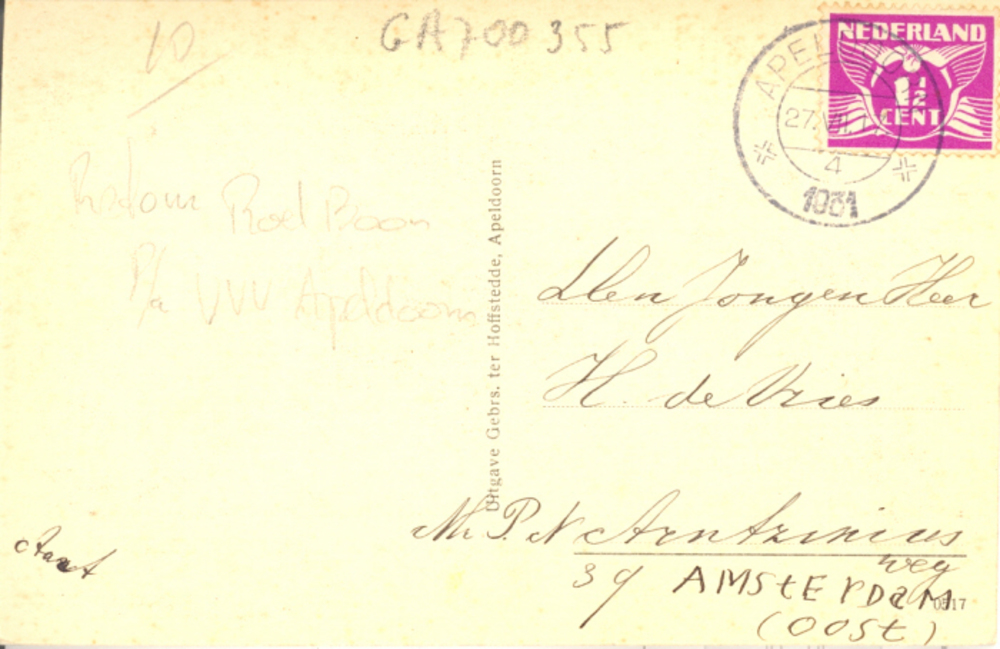 10
GA700355
NEDERLAND
1 1/2
CENT
APELDOORN
27.VII.
4
1931
Roel Boon
P/a VVV Apeldoorn
Uitgave Gebrs. ter Hoffstedde, Apeldoorn
Den Jongen Heer
H. de Vries
Mr. P. N Arntzenius
weg
39 AMSterdaM
(OOSt)
0517